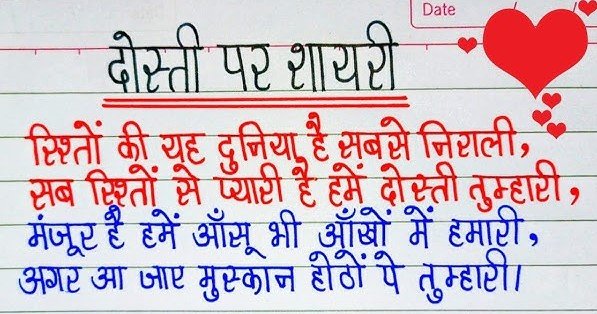 Date
दोस्ती पर शायरी
रिश्तों की यह दुनिया है सबसे निराली,
सब रिश्तों से प्यारी है हमें दोस्ती तुम्हारी,
मंजूर है हमें आँसू भी आँखों में हमारी,
अगर आ जाए मुस्कान होठों पे तुम्हारी।